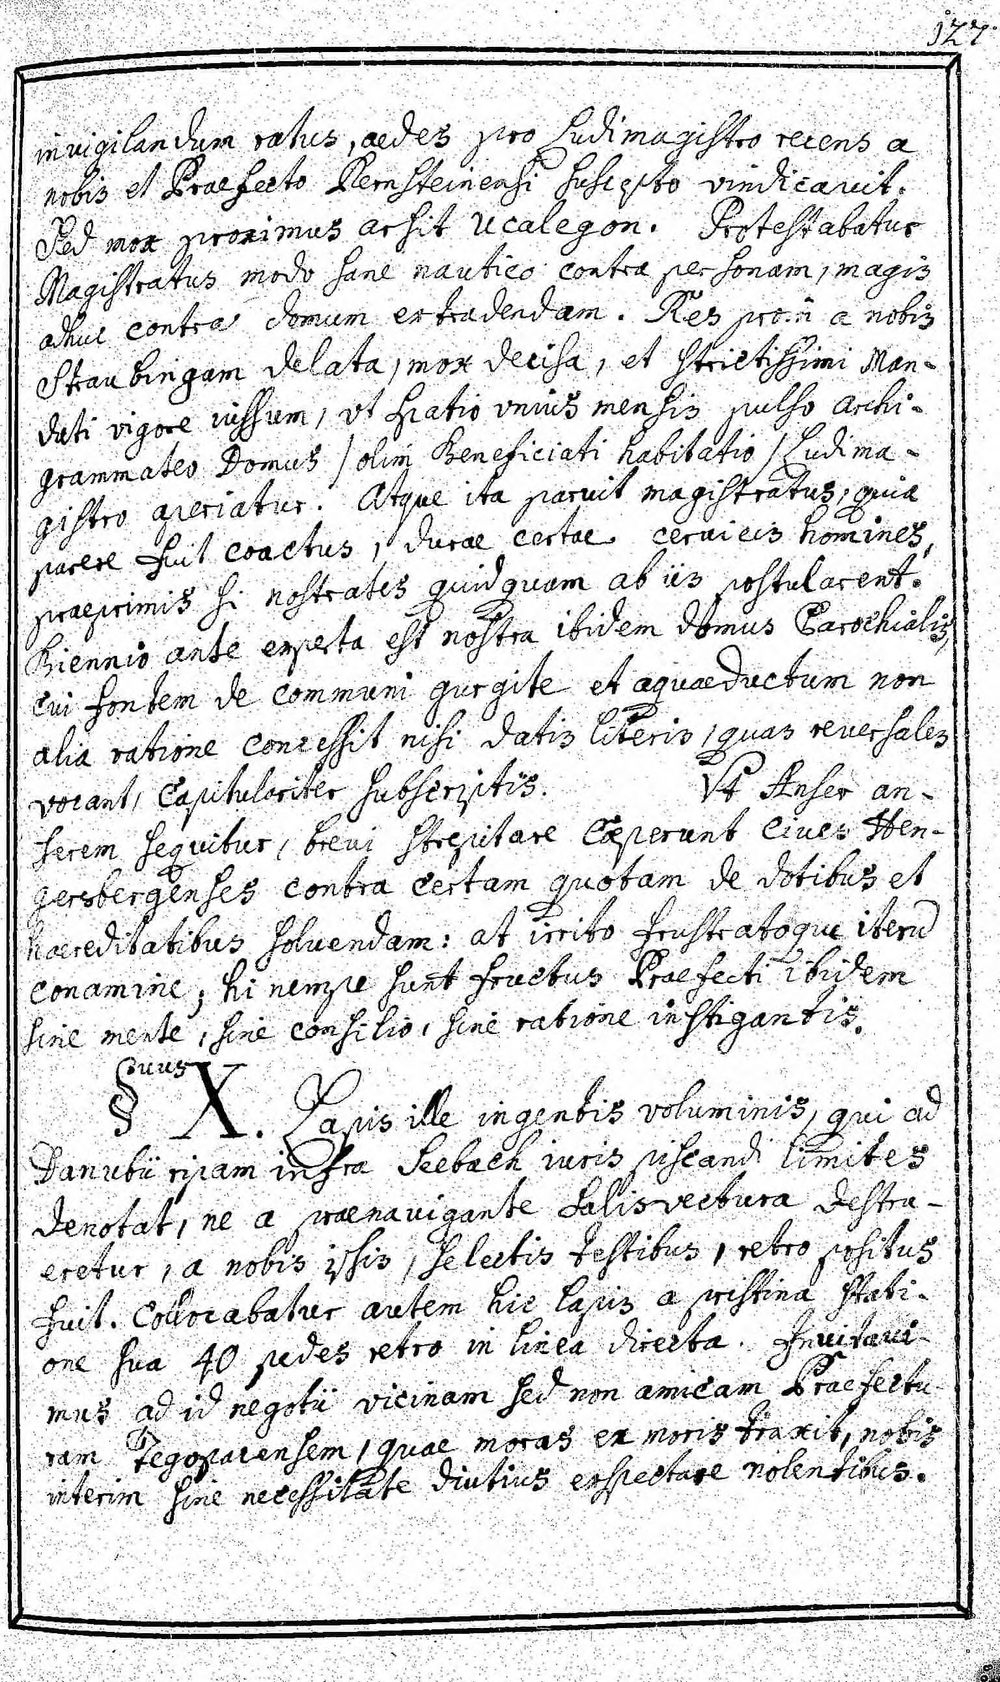 127.
invigilandum ratus, aedes pro Ludimagistro recens a
nobis et Praefecto Bernsteinensi suscepto vindicavit.
Sed mox proximus arsit Ucalegon. Protestabatur
Magistratus modo sane nautico contra personam, magis
adhuc contra domum extradendam. Res a nobis
Straubingam delata, mox decisa, et strictissimi Man-
dati vigore iussum, vt spatio vnius mensis pulso Archi-
grammateo Domus / olim Beneficiati habitatio / Ludima-
gistro aperiatur. Atque ita paruit magistratus, quia
parere fuit coactus, durae certae ceruicis homines,
praeprimis si nostrates quidquam ab iis postularent.
Biennio ante erecta est nostra ibidem domus Parochialis,
cui fontem de communi gurgite et aquaeductum non
alia ratione concessit nisi datis literis, quas reuersales
vocant, Capitulariter subscriptis. Vt Anser an-
serem sequitur, breui strepitare Caeperunt Ciues Hen-
gersbergenses contra certam quotam de dotibus et
haereditatibus soluendam: at irrito frustratoque iterū
conamine, hi nempe sunt fructus Praefecti ibidem
sine mente, sine consilio, sine ratione instigantis.
§vus X. Lapis ille ingentis voluminis, qui ad
Danubii ripam infra Seebach iuris piscandi limites
denotat, ne a praenauigante salisvectura destru-
eretur, a nobis ipsis, selectis testibus, retro positus
fuit. Collocabatur autem hic lapis a pristina stati-
one sua 40 pedes retro in linea directa. Inuitaui-
mus ad id negotii vicinam sed non amicam Praefectu-
ram Tegopacensem, quae moras ex moris traxit, nobis
interim sine necessitate diutius exspectare nolentibus.